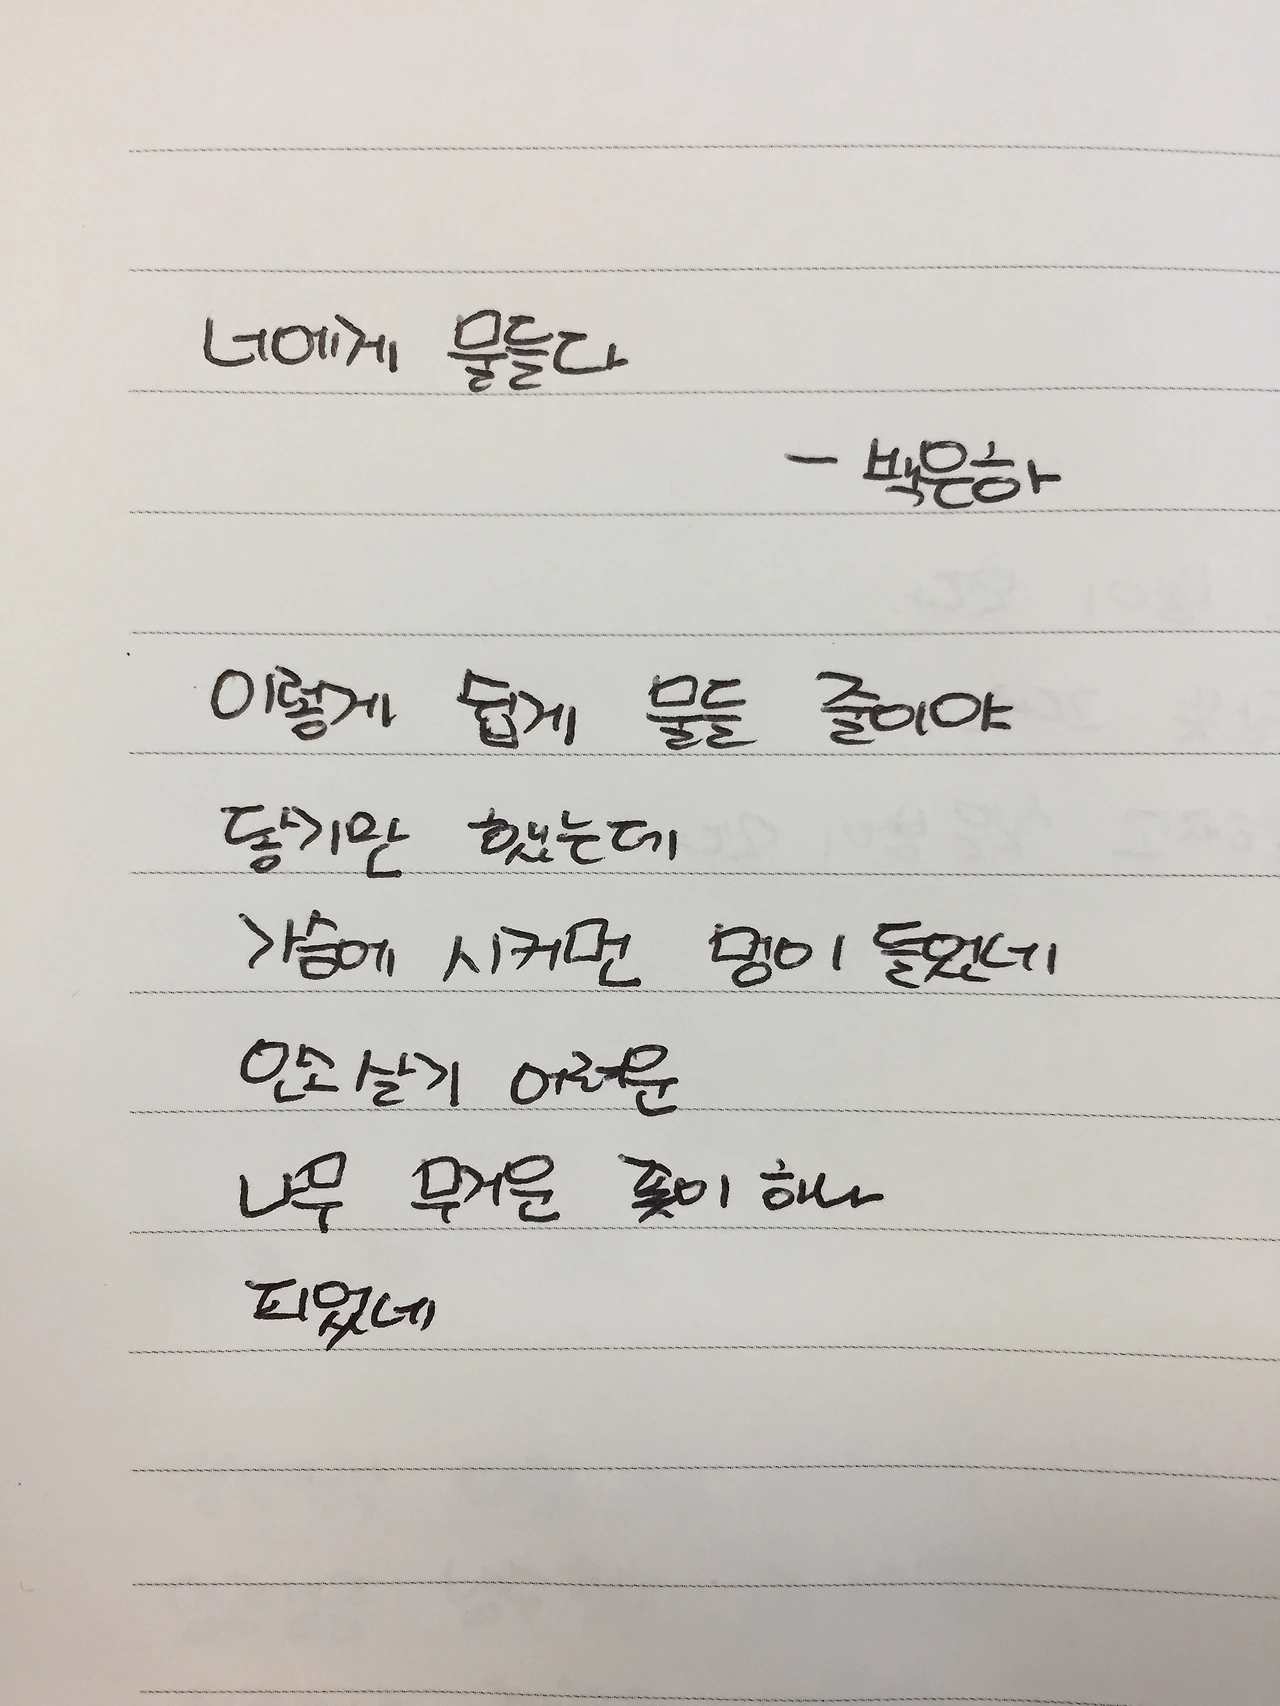 너에게 물들다
- 백은하
이렇게 쉽게 물들 줄이야
닿기만 했는데
가슴에 시커먼 멍이 들었네
안고 살기 어려운
너무 무거운 꽃이 하나
피었네